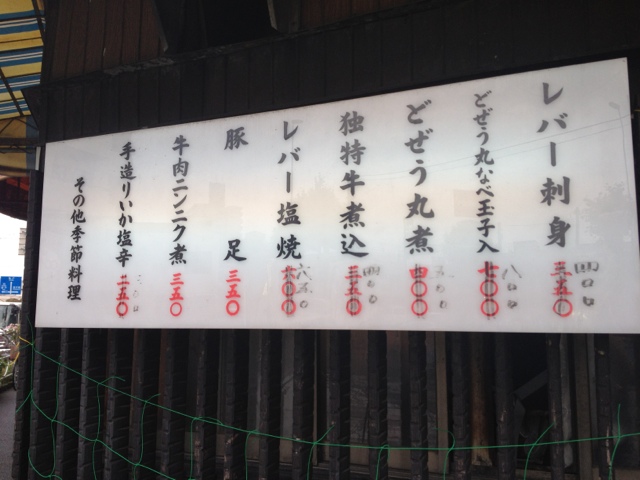 レバー刺身 三五〇 四〇〇
どぜう丸なべ玉子入 七〇〇 八〇〇
どぜう丸煮 四〇〇
独特牛煮込 三五〇 四〇〇
レバー塩焼
豚足 三五〇
牛肉ニンニク煮 三五〇
手造りいか塩辛 二五〇
その他季節料理